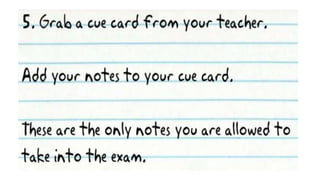 5. Grab a cue card from your teacher.
Add your notes to your cue card.
These are the only notes you are allowed to
take into the exam.